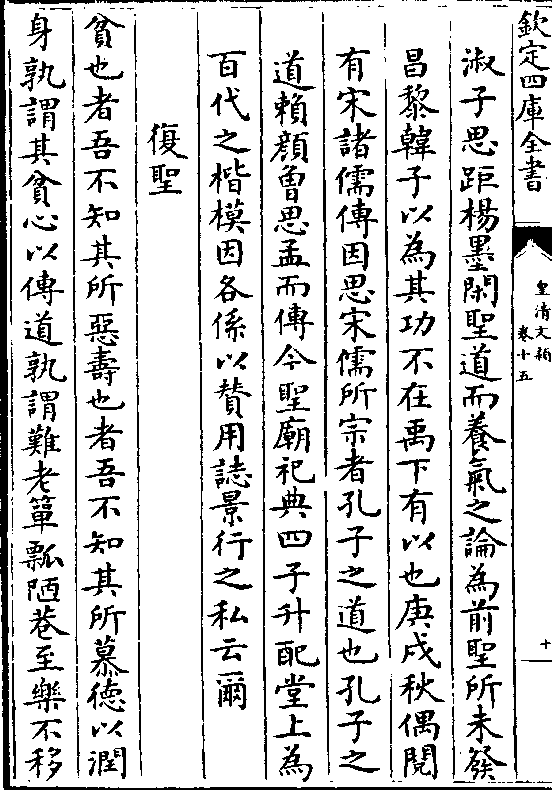 欽定四庫全書
皇清文穎
卷十五
十
淑子思距楊墨閑聖道而養氣之論為前聖所未發
昌黎韓子以為其功不在禹下有以也庚戌秋偶閱
有宋諸儒傳因思宋儒所宗者孔子之道也孔子之
道賴顏曾思孟而傳今聖廟祀典四子升配堂上為
百代之楷模因各係以贊用誌景行之私云爾
復聖
貧也者吾不知其所惡壽也者吾不知其所慕德以潤
身孰謂其貧心以傳道孰謂難老簞瓢陋巷至樂不移